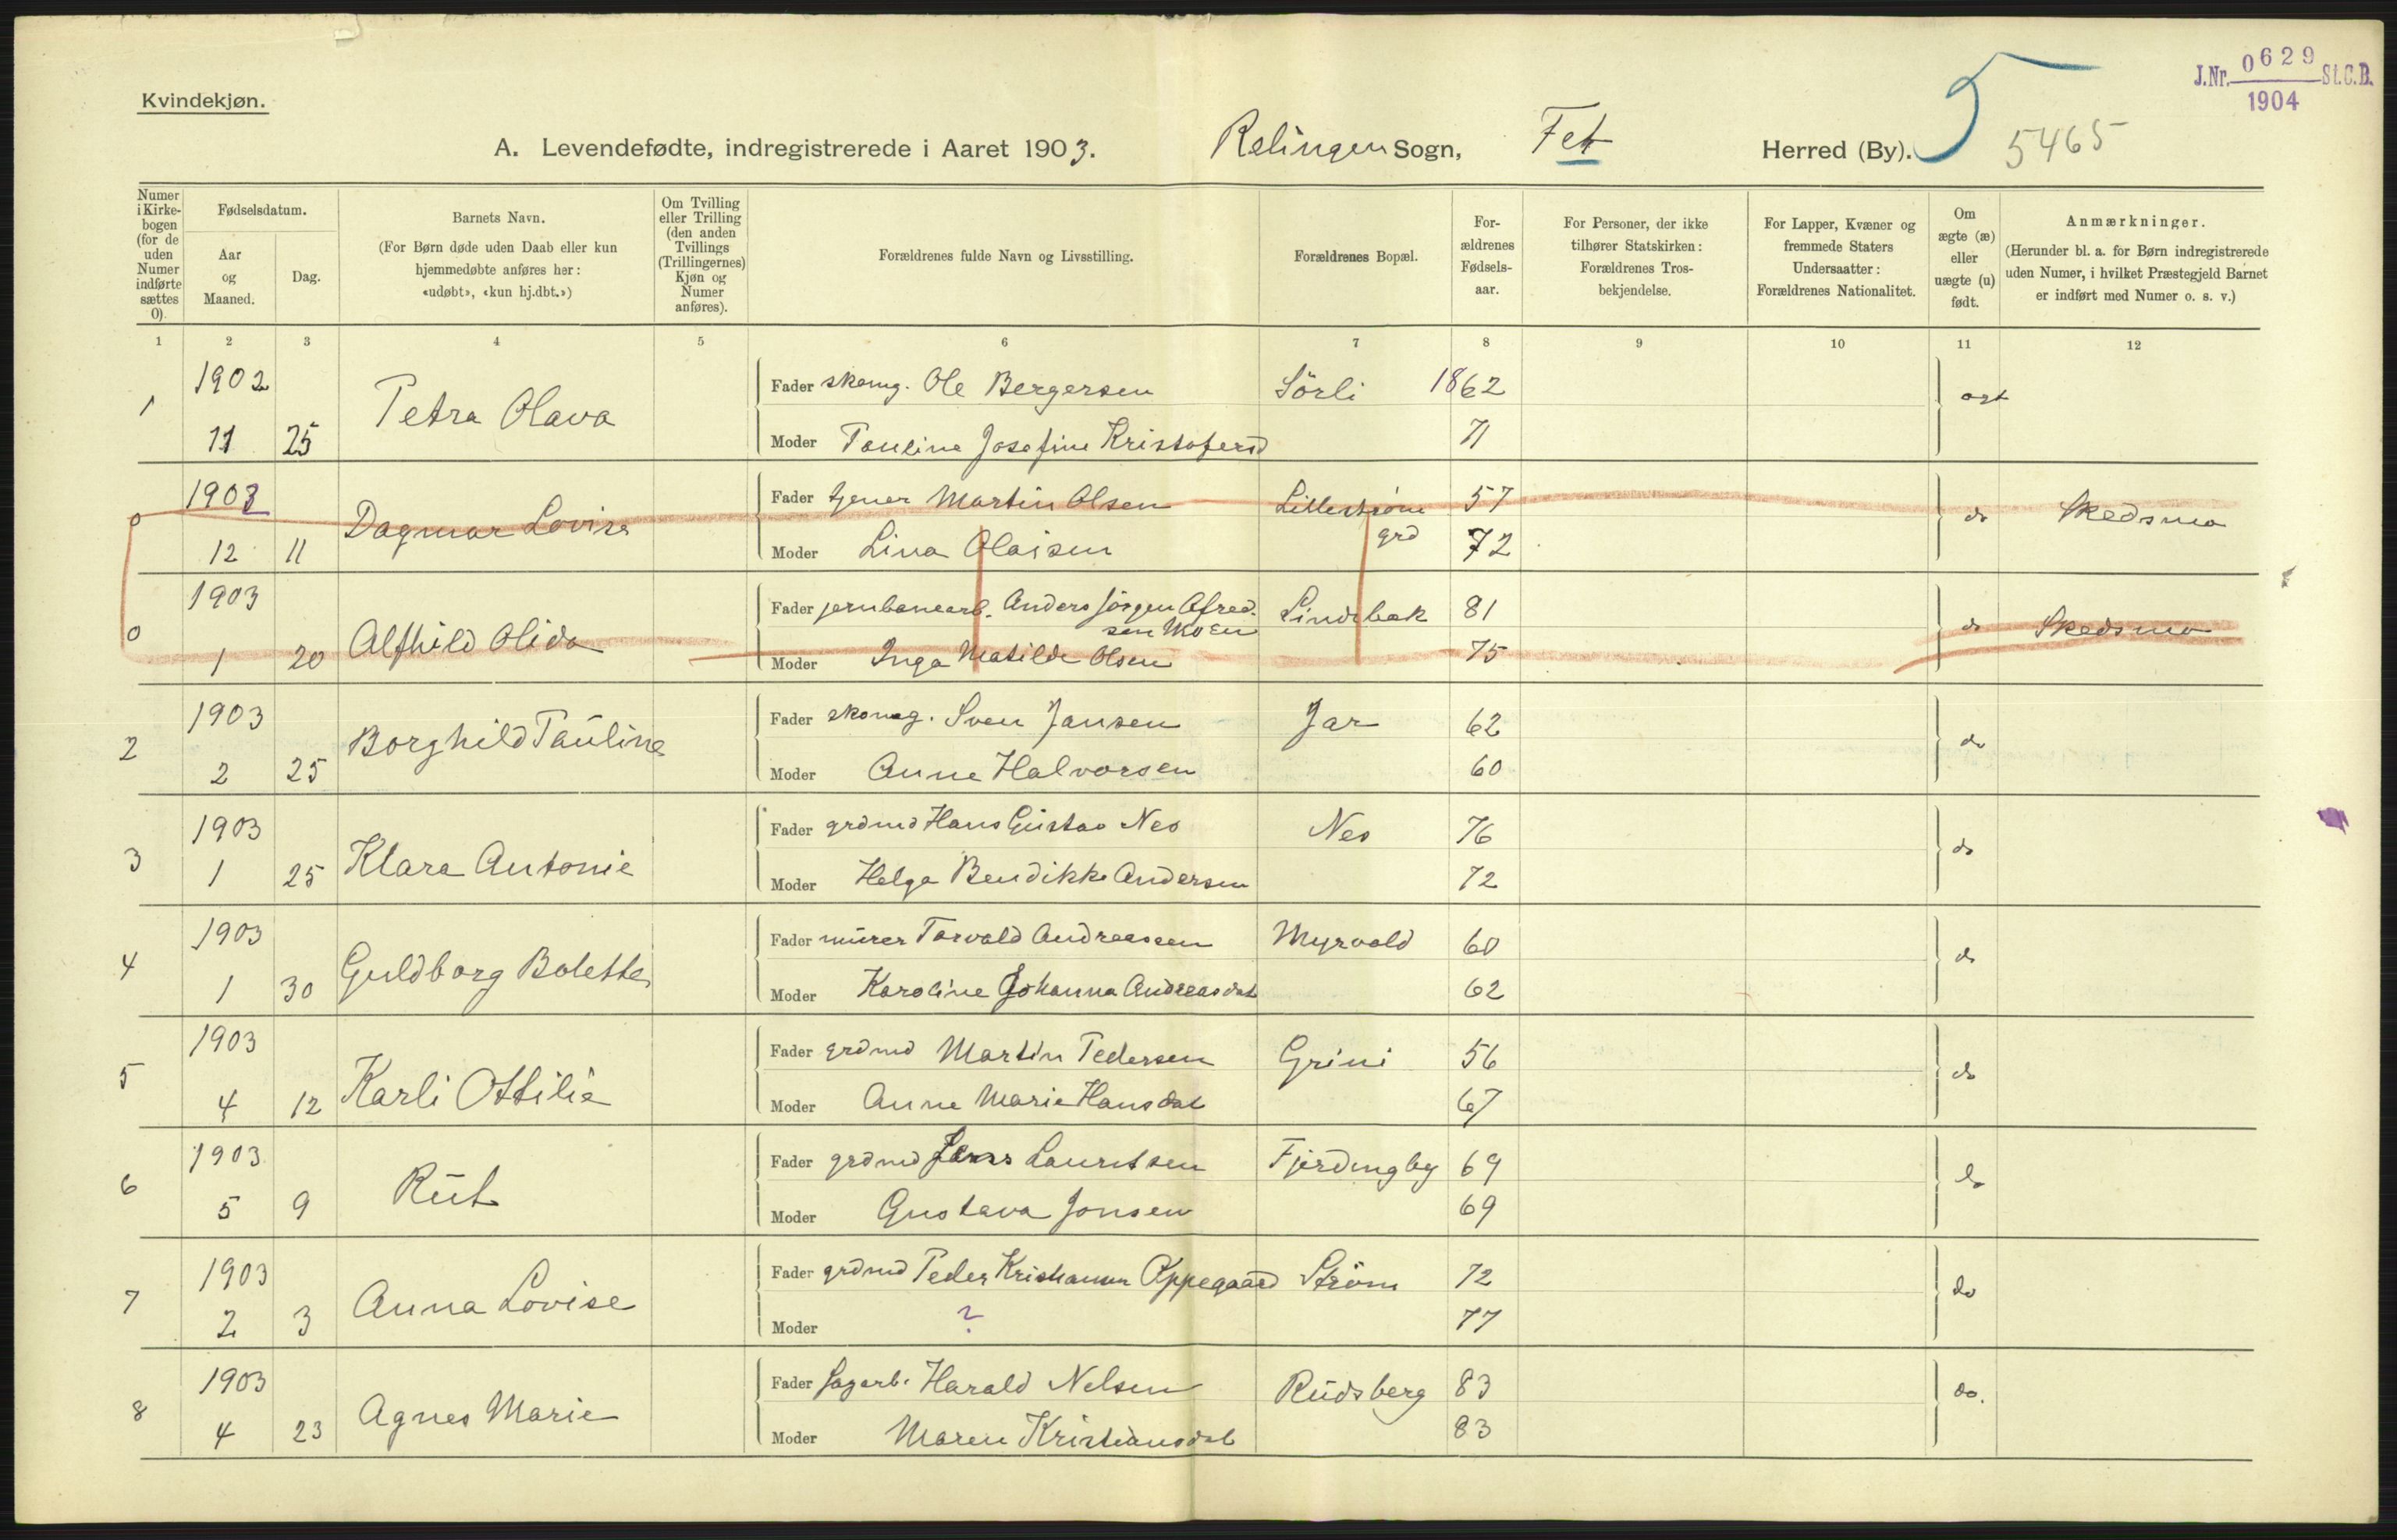 J.Nr. 0629 St.C.B.
1904
Kvindekjøn.
5
5465
A. Levendefødte, indregistrerede i Aaret 1903. Relingen Sogn, Fet Herred (By).
Numer i Kirkebogen (for de uden Numer indførte sættes 0).
Fødselsdatum.
Aar og Maaned.
Dag.
Barnets Navn.
(For Børn døde uden Daab eller kun hjemmedøbte anføres her: «udøbt», «kun hj.dbt.»)
Om Tvilling eller Trilling (den anden Tvillings (Trillingernes) Kjøn og Numer anføres).
Forældrenes fulde Navn og Livsstilling.
Forældrenes Bopæl.
For-ældrenes Fødsels-aar.
For Personer, der ikke tilhører Statskirken: Forældrenes Tros-bekjendelse.
For Lapper, Kvæner og fremmede Staters Undersaatter: Forældrenes Nationalitet.
Om ægte (æ) eller uægte (u) født.
Anmærkninger.
(Herunder bl. a. for Børn indregistrerede uden Numer, i hvilket Præstegjeld Barnet er indført med Numer o. s. v.)
1 2 3 4 5 6 7 8 9 10 11 12
1 1902 Petra Olava Fader Ole Bergersen Sörli 1862 ægt
11 25 Moder Pauline Josefine Kristofersd 71
0 1903 Dagmar Lovise Fader tjener Martin Olsen Lillestrøm 57 do Skedsmo
12 11 Moder Lina Olaisen grd 72
0 1903 Alfhild Olida Fader jernbanearb. Anders Jörgen Afred. Lindebæk 81 do Skedsmo
sen Moen
1 20 Moder Inga Matilde Olsen 75
2 1903 Borghild Pauline Fader Sven Jansen Jar 62 do
2 25 Moder Anne Halvorsen 60
3 1903 Klara Antonie Fader grdmd Hans Gustav Nes Nes 76 do
1 25 Moder Helga Bendikke Andersen 72
4 1903 Guldborg Bolette Fader murer Torvald Andreassen Myrvold 60 do
1 30 Moder Karoline Johanna Andreasdat 62
5 1903 Karli Ottilie Fader grdmd Martin Pedersen Grini 56 do
4 12 Moder Anne Marie Hansdat 67
6 1903 Rut Fader grdmd Lauritsen Fjerdingby 69 do
5 9 Moder Gustava Jonsen 69
7 1903 Anna Lovise Fader grdmd Peder Kristiansen Oppegaard Ström 72 do
2 3 Moder ? 77
8 1903 Agnes Marie Fader Sagarb. Harald Nelsen Rudsberg 83 do.
4 23 Moder Maren Kristiansdat 83